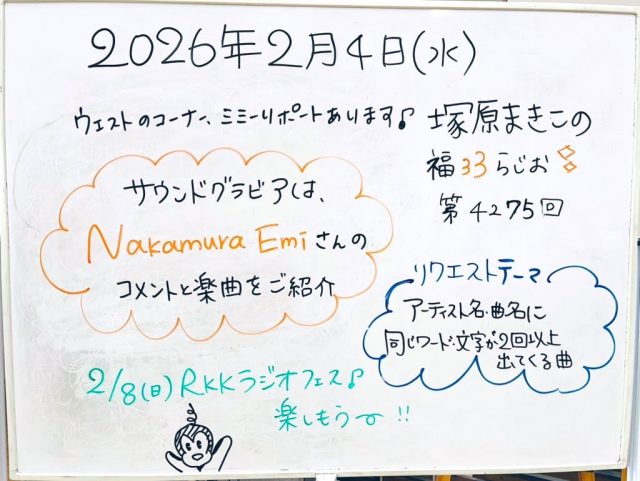 2026年2月4日(水)
ウエストのコーナー、ミミーリポートあります♪
塚原まきこの
福ββらじお
第4275回
サウンドグラビアは、
Nakamura Emiさんの
コメントと楽曲をご紹介
リクエストテーマ
アーティスト名・曲名に
同じワード・文字が2回以上
出てくる曲
2/8(日)RKKラジオフェス♪
楽しもうー!!